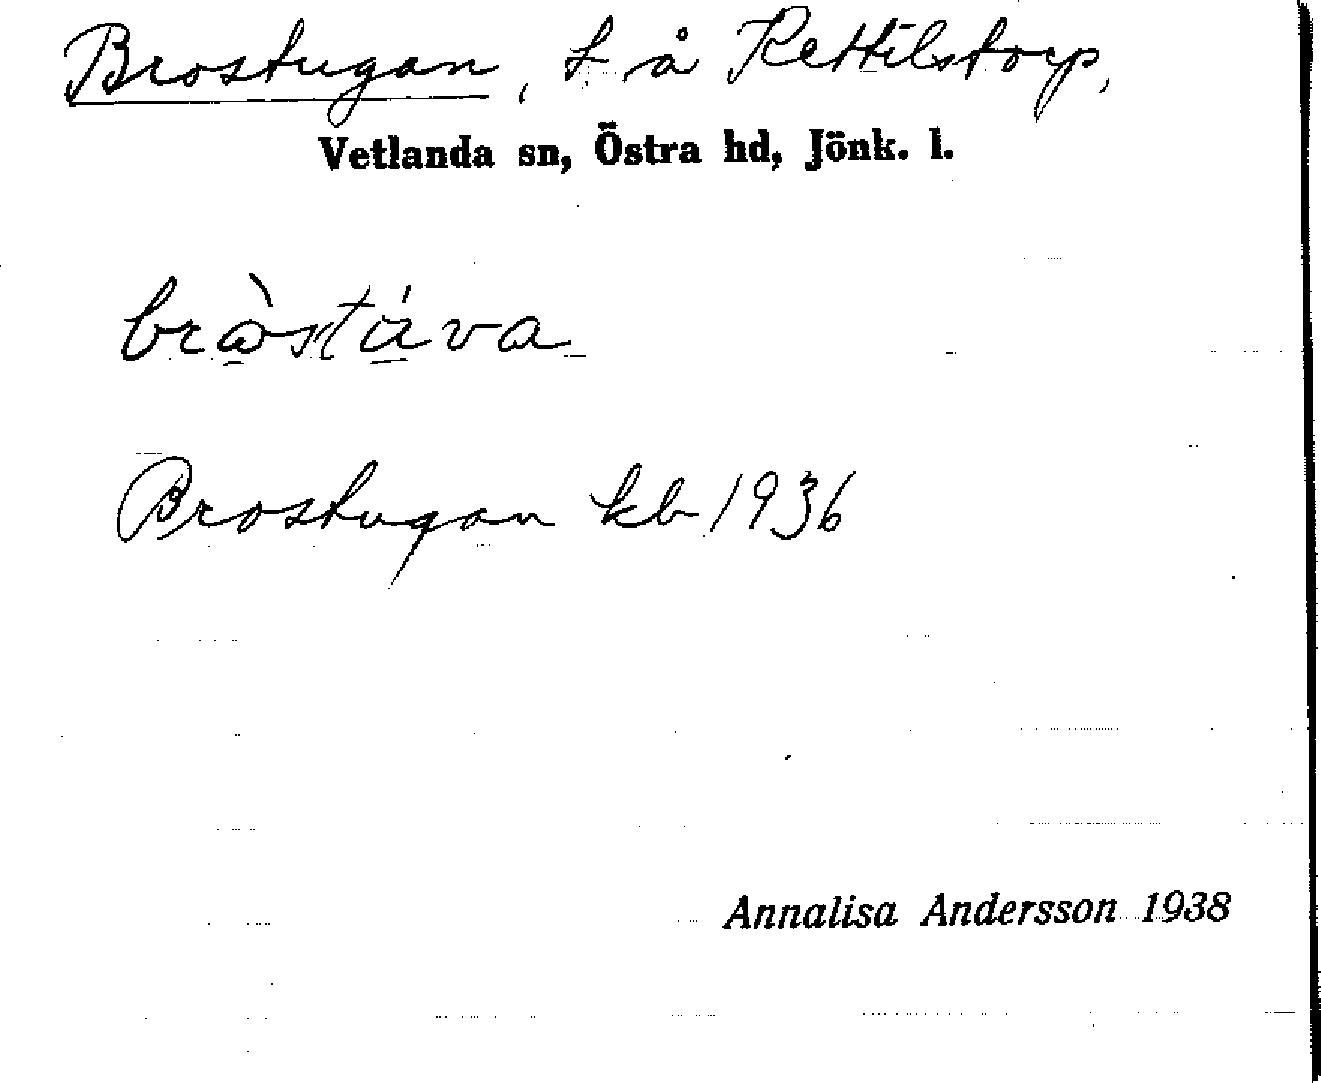 Brostugan, t å Kettilstorp,
Vetlanda sn, Östra hd, Jönk. l.
bròstúva
Brostugan kb 1936
Annalisa Andersson 1938